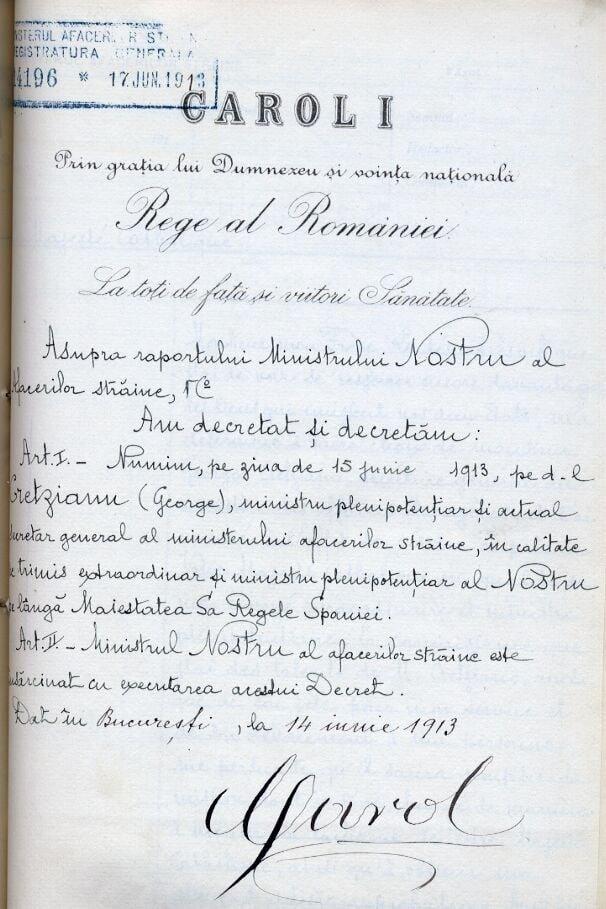 NISTERUL AFACERILOR STR
EGISTRATURA GENERALA
4196 * 17.JUN.1913
CAROL I
Prin grația lui Dumnezeu și voința națională
Rege al României.
La toți de față și viitori Sănătate.
Asupra raportului Ministrului Nostru al
Afacerilor străine,
Am decretat și decretăm:
Art. I. – Numim, pe ziua de 15 junie 1913, pe d-l
Cretzianu (George), ministru plenipotențiar și actual
secretar general al ministerului afacerilor străine, în calitate
e trimis extraordinar și ministru plenipotențiar al Nostru
pe lângă Maiestatea Sa Regele Spaniei.
Art. II – Ministrul Nostru al afacerilor străine este
însărcinat cu executarea acestui Decret.
Dat în București, la 14 iunie 1913
Carol